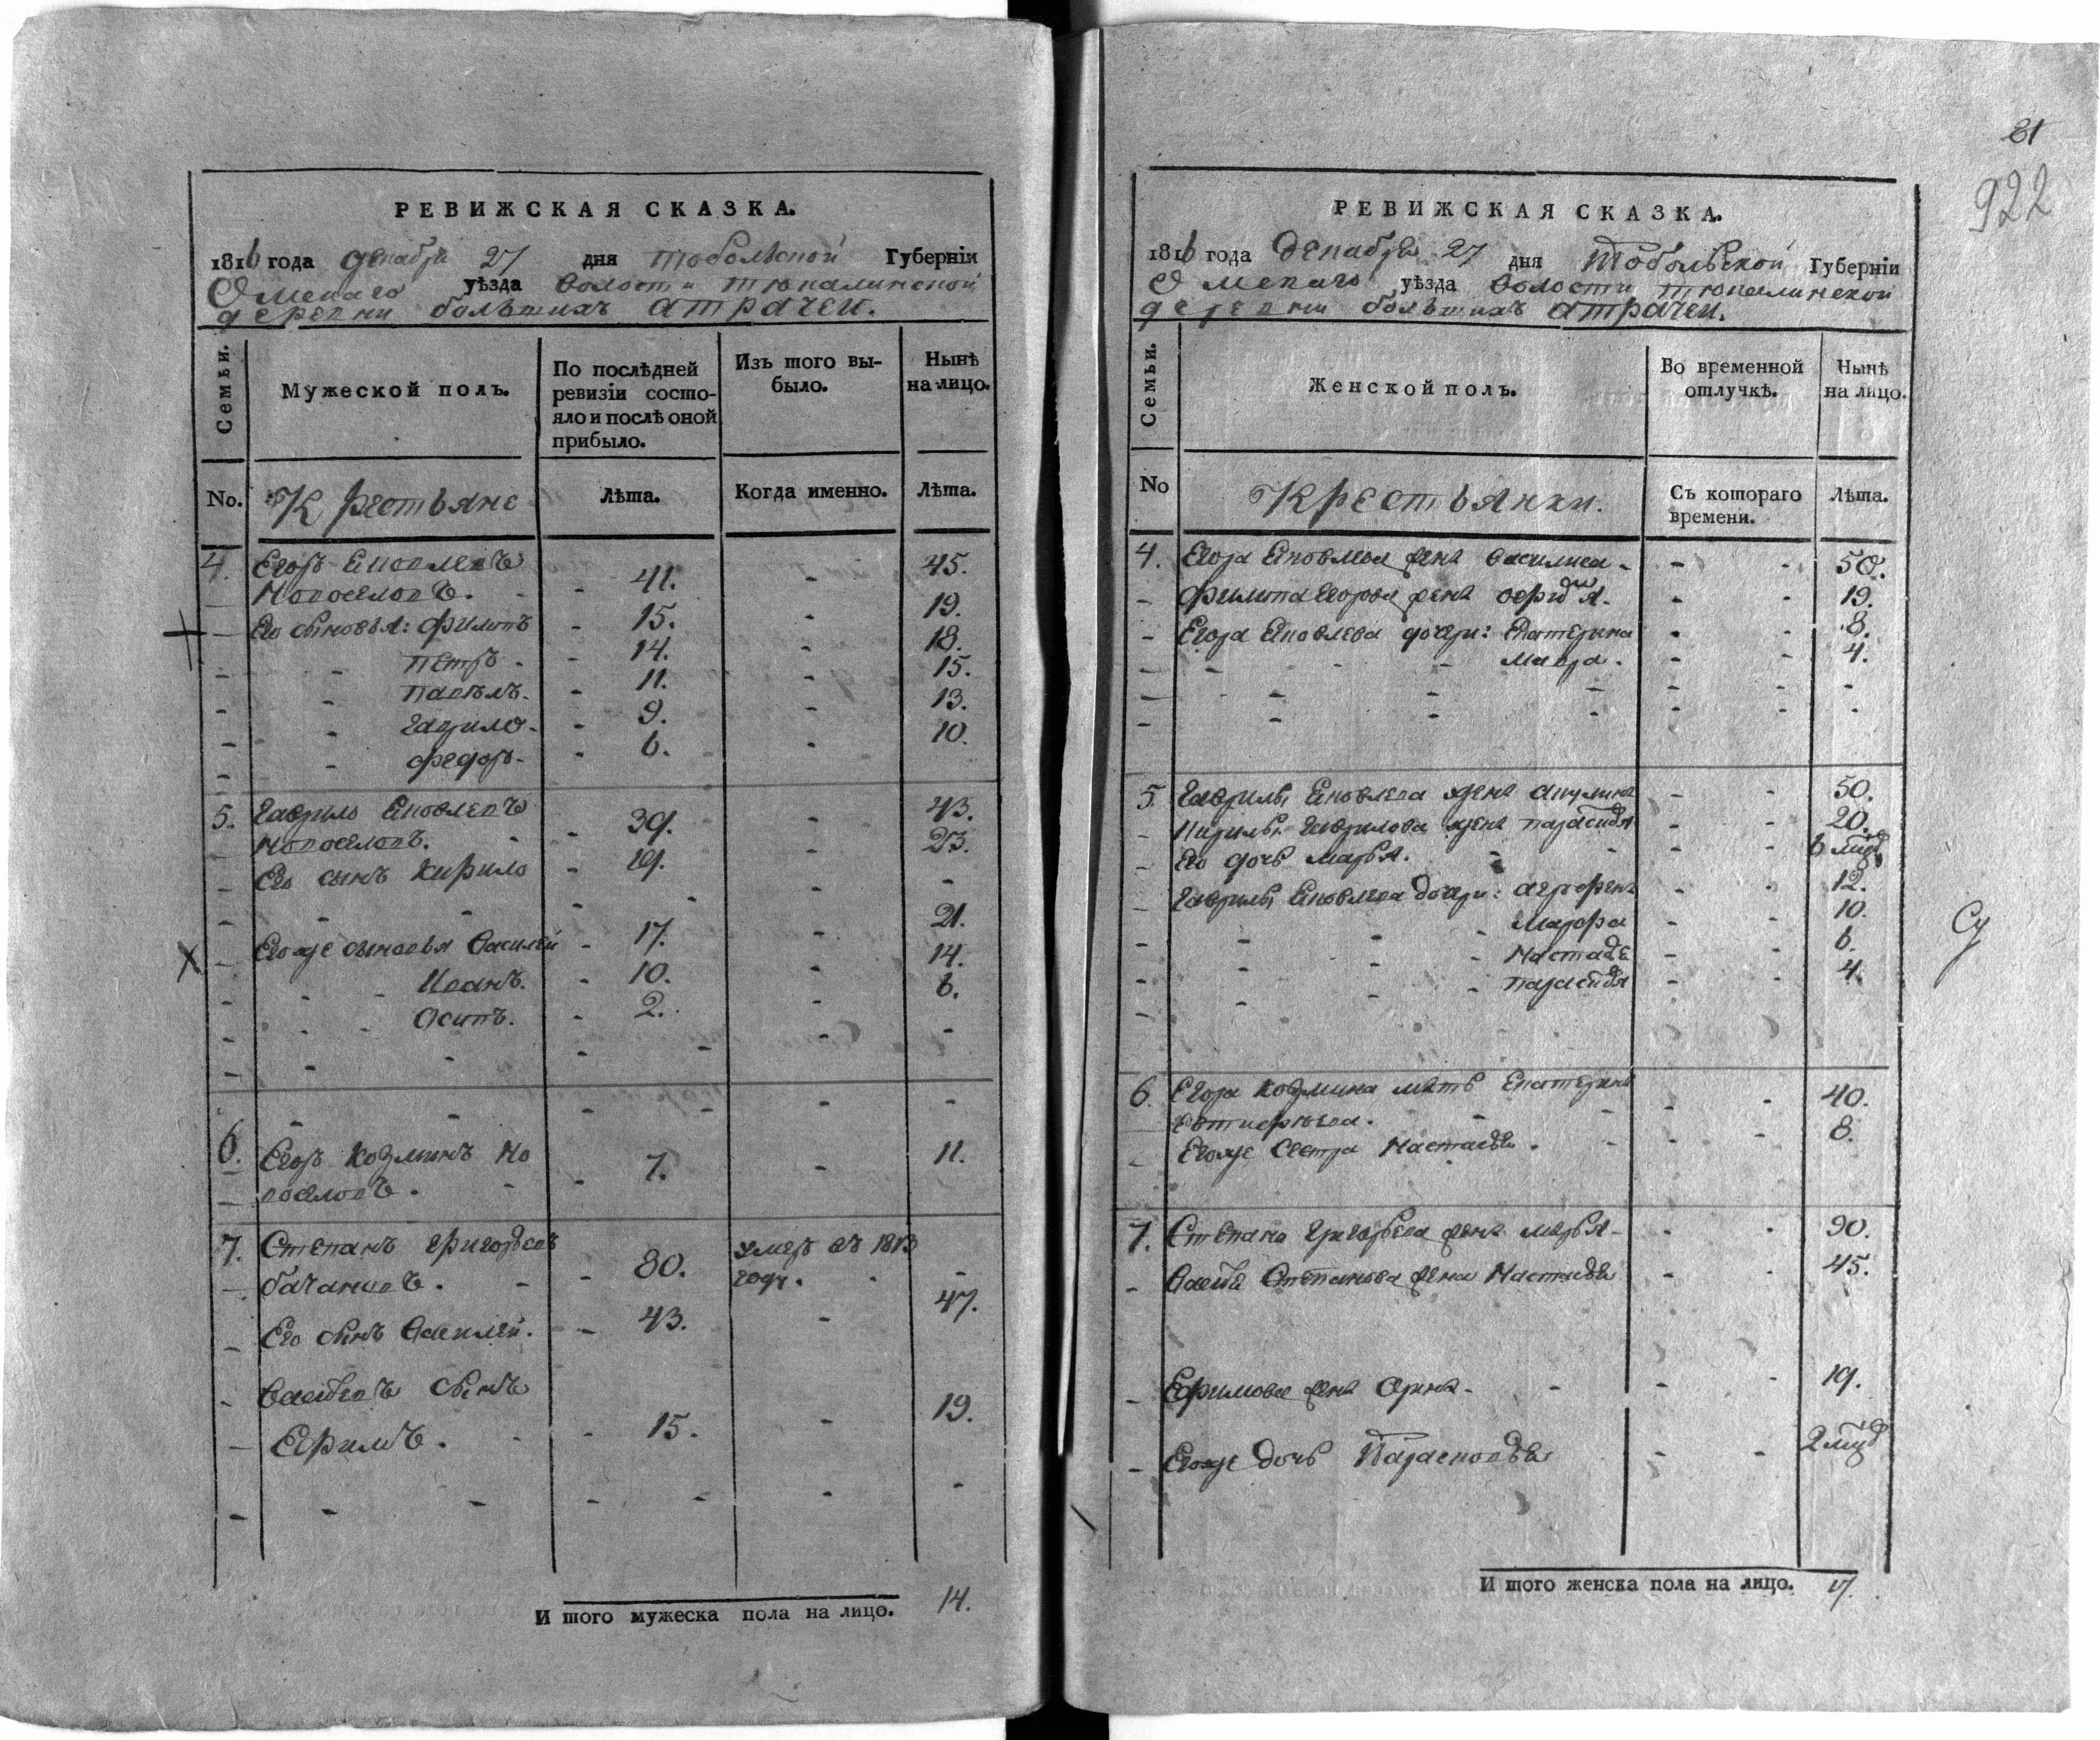 РЕВИЖСКАЯ СКАЗКА.
1816 года декабря 27 дня тобольской Губерніи
Омскаго уѣзда волости тюкалинской
деревни большихъ атрачеи.
Семьи.
Мужеской полъ.
По послѣдней
ревизіи состо-
яло и послѣ оной
прибыло.
Изъ того вы-
было.
Нынѣ
на лицо.
No.
Крестьяне
Лѣта.
Когда именно.
Лѣта.
4. Егоръ Яковлевъ
Новоселовъ. - 41. - 45.
Его сыновья: Филипъ - 15. - 19.
петръ - 14. - 18.
павелъ. - 11. - 15.
гаврило - 9. - 13.
федоръ - 6. - 10.
5. Гаврило Яковлевъ
Новоселовъ. - 39. - 43.
Его сынъ Кирило - 19. - 23.
Его же сыновья Василей - 17. - 21.
Иванъ. - 10. - 14.
Осипъ. - 2. - 6.
6. Егоръ Козминъ Но
воселовъ. - 7. - 11.
7. Степанъ григорьевъ
бачановъ. - 80. умеръ въ 1813
году. -
Его сынъ Василей. - 43. - 47.
Васильевъ сынъ
Ефимъ. - 15. - 19.
И того мужеска пола на лицо. 14.
81
922
РЕВИЖСКАЯ СКАЗКА.
1816 года декабря 27 дня Тобольской Губерніи
Омскаго уѣзда волости тюкалинской
деревни большихъ атрачеи.
Семьи.
Женской полъ.
Во временной
отлучкѣ.
Нынѣ
на лицо.
No
Крестьянки.
Съ котораго
времени.
Лѣта.
4. Егора Яковлева жена василиса - - 50.
Филипа Егорова жена - - 19.
Егора Яковлева дочери: Екатерина - - 8.
Мавра. - - 4.
5. Гаврилы Яковлева жена акулина - - 50.
Кирилы Гаврилова жена - - 20.
Его дочь марья. - - 6
Гаврилы Яковлева дочери: агрофена - - 12.
Марфа - - 10.
- - 6.
- - 4.
6. Егора Козмина мать Екатерина
- - 40.
Егоже Сестра Настасья. - - 8.
7. Степана григорьева жена марья - - 90.
Степанова жена Настасья - - 45.
Ефимова жена Орина - - 19.
Егоже дочь Парасковья - - 2
Су
И того женска пола на лицо. 17.